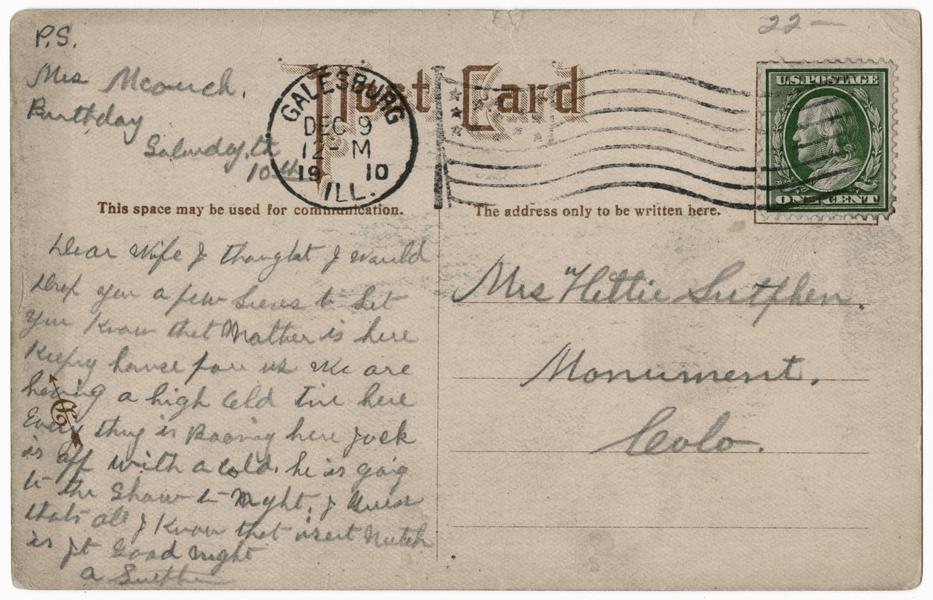 22-
P.S.
Mrs Mcouch.
Birthday
Saturday, th
10th
Post Card
GALESBURG
DEC 9
12- M
19 10
ILL.
U.S. POSTAGE
ONE CENT
This space may be used for communication.
The address only to be written here.
Dear Wife I thought I would
drop you a few lines to let
you know that Mother is here
Keeping house for us We are
having a high old time here
Every thing is Booming here Jack
is off with a cold. he is going
to the Show to Night. I Guess
thats all I Know that isent Mutch
is it Good Night
a Sutphen
Mrs Hettie Sutphen.
Monument.
Colo.